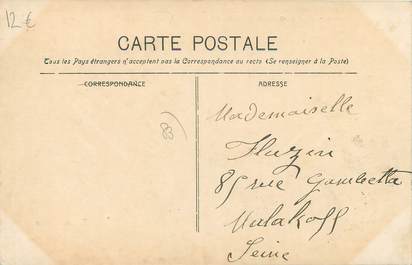 12 €
CARTE POSTALE
Tous les Pays étrangers n'acceptent pas la Correspondance au recto (Se renseigner à la Poste)
CORRESPONDANCE
ADRESSE
83)
Mademoiselle
Fluzin
85 rue Gambetta
Malakoff
Seine